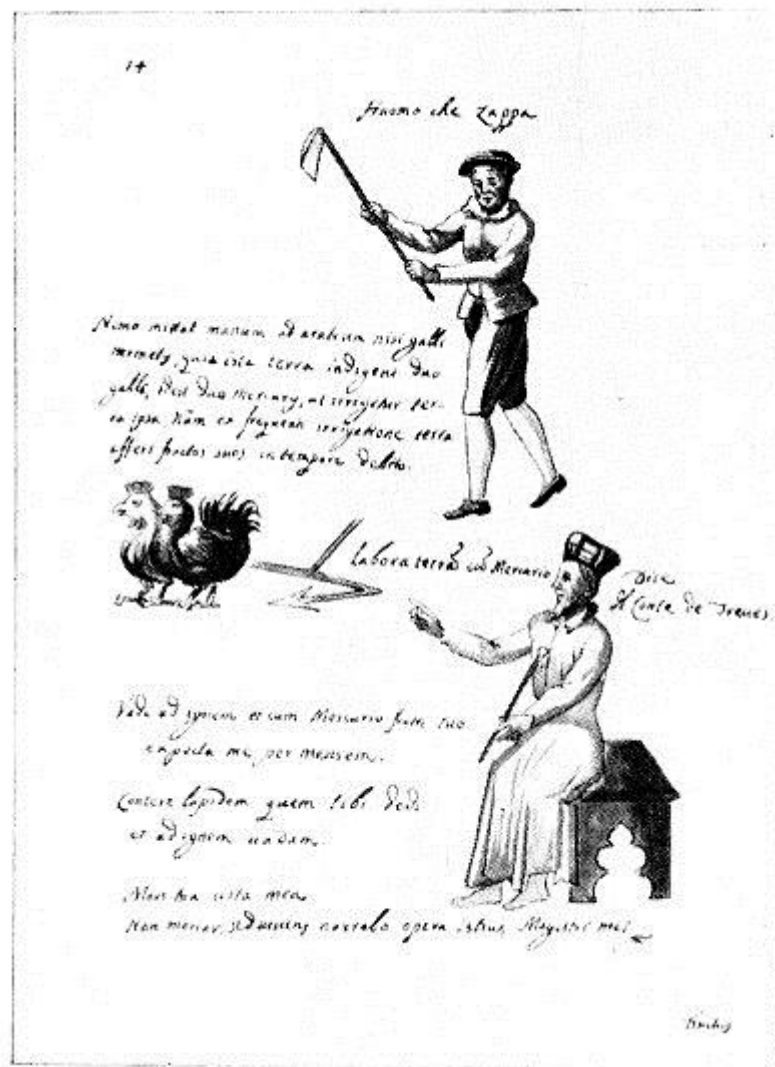 14
Huomo che Zappa
Nemo mittat manum ad aratrum nisi galli
quia ista terra indigent duo
galli, id est duo Mercurij, ut irrigetur ter-
ra ipsa. Nam ex frequenti irrigatione terra
affert fructus suos in tempore debito.
Labora terrã cũ Mercurio
Dice
Il Conte de Treues
Vade ad ignem et cum Mercurio fratre tuo
me per mensem.
Contere lapidem quem tibi dedi
et ad ignem
Mors tua vita mea
Non morior, sed vivens narrabo opera istius Magistri mei